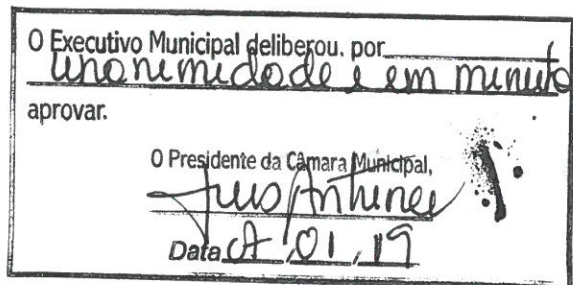 O Executivo Municipal deliberou, por
unanimidade e em minuta
aprovar.
O Presidente da Câmara Municipal,
Antunes
Data 01, 19